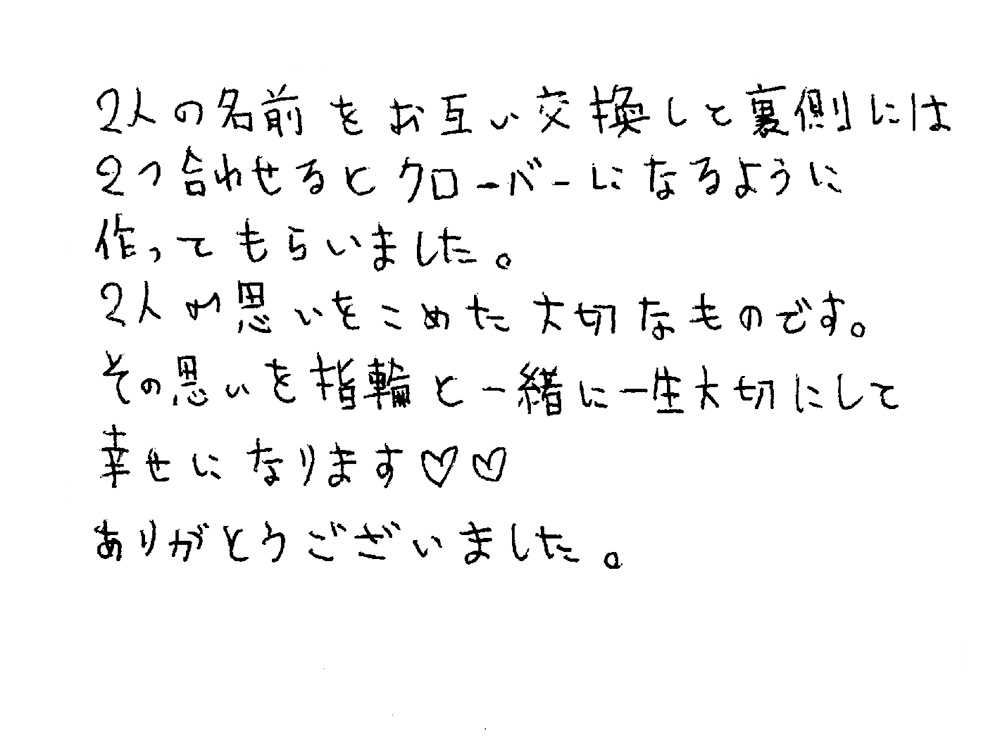 2人の名前をお互い交換しと裏側には
2つ合わせるとクローバーになるように
作ってもらいました。
2人が思いをこめた大切なものです。
その思いを指輪と一緒に一生大切にして
幸せになります♡♡
ありがとうございました。